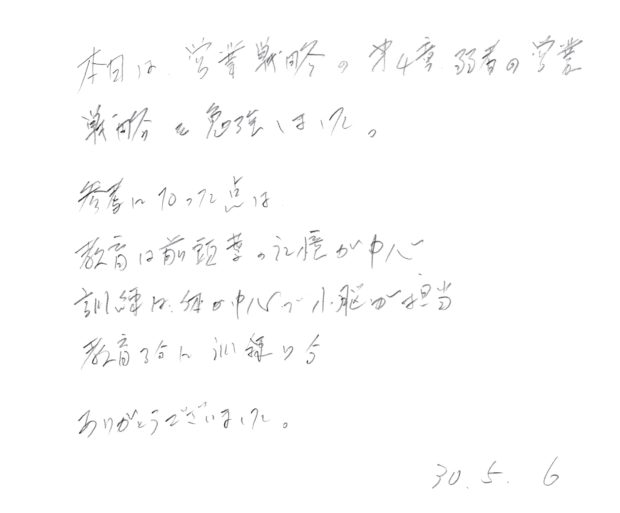 本日は、営業戦略の第4章、弱者の営業
戦略を勉強しました。
参考になった点は
教育は前頭葉の記憶が中心
訓練は、体が中心で小脳が担当
教育3分に訓練7分
ありがとうございました。
30.5.6